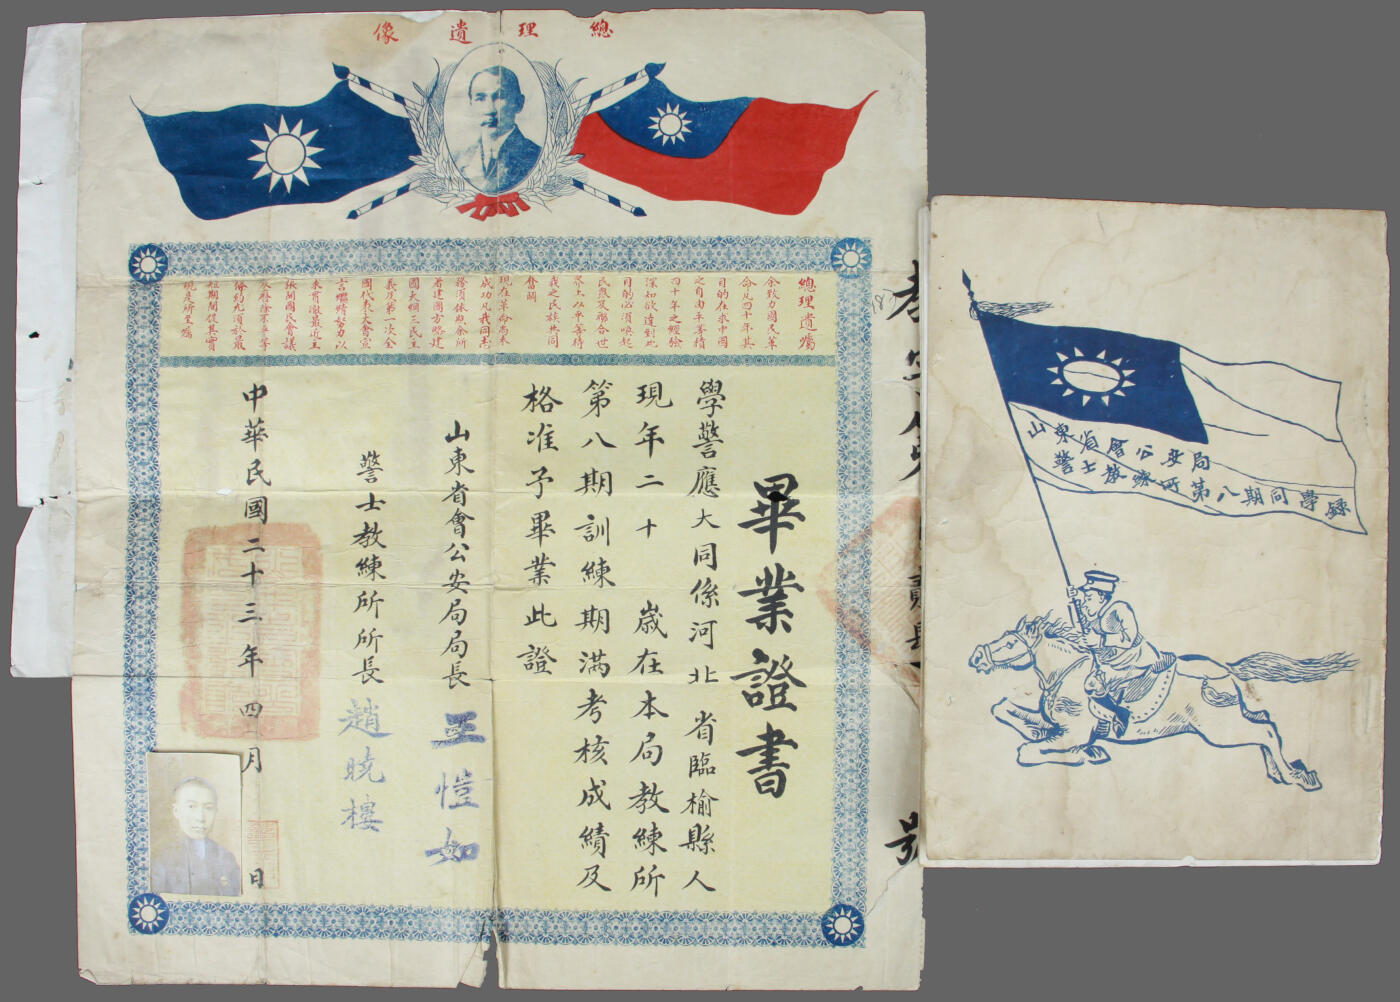 總理遺像
總理遺囑
余致力國民革
命凡四十年其
目的在求中國
之自由平等積
四十年之經驗
深知欲達到此
目的必須喚起
民衆及聯合世
界上以平等待
我之民族共同
奮鬭
現在革命尚未
成功凡我同志
務須依照余所
著建國方略建
國大綱三民主
義及第一次全
國代表大會宣
言繼續努力以
求貫澈最近主
張開國民會議
及廢除不平等
條約尤須於最
短期間促其實
現是所至囑
畢業證書
學警應大同係河北省臨榆縣人
現年二十歲在本局教練所
第八期訓練期滿考核成績及
格准予畢業此證
山東省會公安局局長王愷如
警士教練所所長趙曉樓
中華民國二十三年四月日
山東省會公安局
警士教練所第八期同學錄